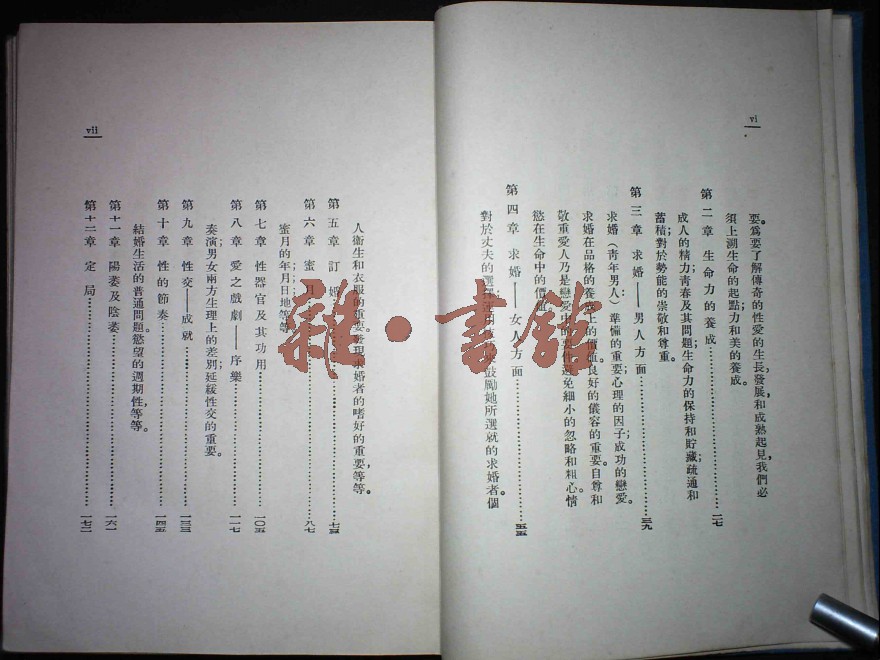 vi
要。爲要了解傳奇的性愛的生長,發展,和成熟起見,我們必
須上溯生命的起點力和美的養成。
第二章 生命力的養成……一七
成人的精力青春及其問題生命力的保持和貯藏;疏通和
蓄積;對於勢能的崇敬和尊重。
第三章 求婚——男人方面……三九
求婚(青年男人)準備的重要;心理的因子;成功的戀愛。
求婚在品格的養成上的價值。良好的儀容的重要。自尊和
敬重愛人乃是戀愛中的要性。避免細小的忽略和粗心。情
慾在生命中的價值
第四章 求婚——女人方面……五五
對於丈夫的選擇 鼓勵她所選就的求婚者。個
vii
人衛生和衣服的重要。發現求婚者的嗜好的重要,等等。
第五章 訂婚……七三
第六章 蜜月……八七
蜜月的年月日地等等
第七章 性器官及其功用……一〇五
第八章 愛之戲劇——序樂……一一七
奏演;男女兩方生理上的差別;延緩性交的重要。
第九章 性交——成就……一三三
第十章 性的節奏……一四五
結婚生活的普通問題。慾望的週期性,等等。
第十一章 陽萎及陰萎……一六一
第十二章 定局……一七二
雜·書館